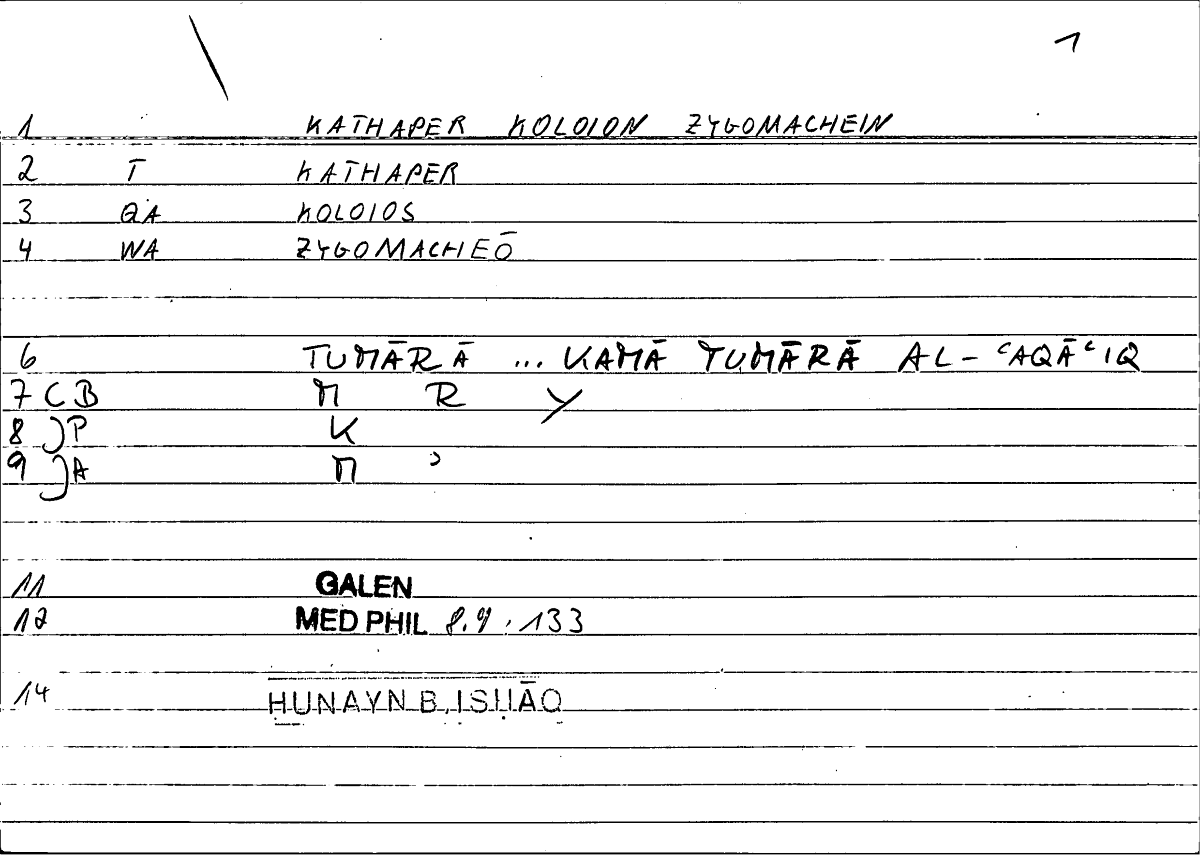 1
1 KATHAPER KOLOION ZYGOMACHEIN
2 T KATHAPER
3 QA KOLOIOS
4 WA ZYGOMACHEŌ
6 TUMĀRĀ ... KAMĀ TUMĀRĀ AL-ʿAQĀʿIQ
7 CB M R Y
8 JP K
9 JA M ʾ
11 GALEN
12 MED PHIL 8.9.133
14 ḤUNAYN B. ISḤĀQ